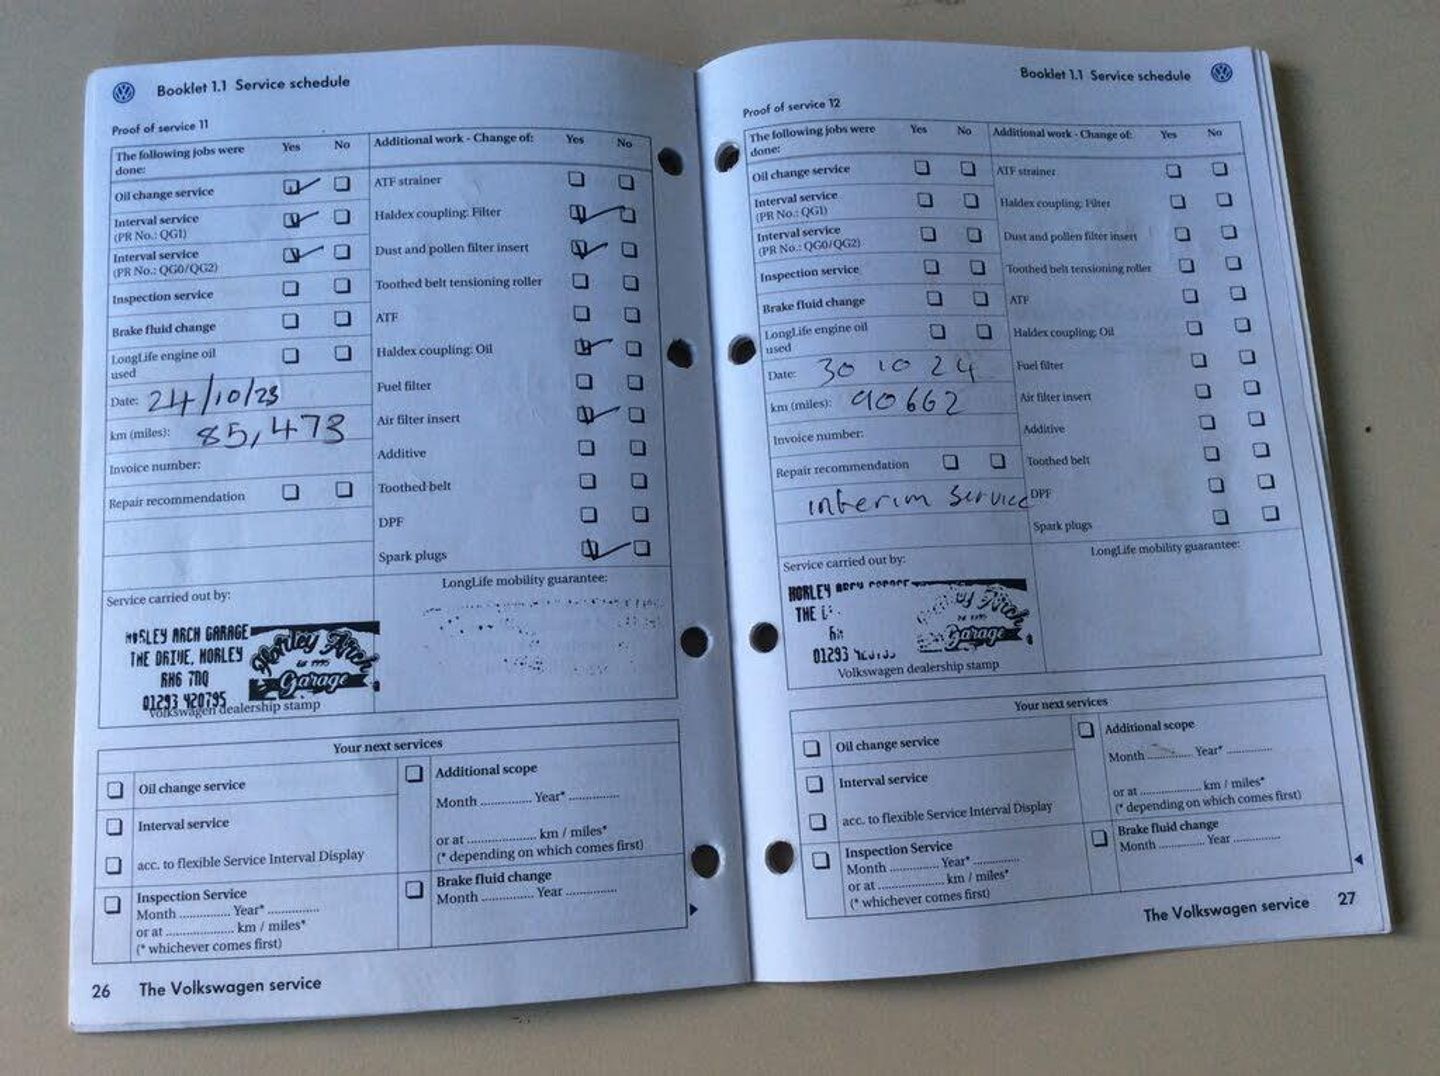 Booklet 1.1 Service schedule
Proof of service 11
The following jobs were done: Yes No
Oil change service
Interval service
(PR No.: QG1)
Interval service
(PR No.: QG0/QG2)
Inspection service
Brake fluid change
LongLife engine oil
used
Date: 24/10/23
km (miles): 85,473
Invoice number:
Repair recommendation
Additional work - Change of: Yes No
ATF strainer
Haldex coupling: Filter
Dust and pollen filter insert
Toothed belt tensioning roller
ATF
Haldex coupling: Oil
Fuel filter
Air filter insert
Additive
Toothed belt
DPF
Spark plugs
Service carried out by:
HORLEY ARCH GARAGE
THE DRIVE, HORLEY
RH6 7NQ
01293 420795
Horley Arch
Est 1995
Garage
Volkswagen dealership stamp
LongLife mobility guarantee:
Your next services
Oil change service
Interval service
acc. to flexible Service Interval Display
Inspection Service
Month .............. Year* ..............
or at .................... km / miles*
(* whichever comes first)
Additional scope
Month .............. Year* ..............
or at .................... km / miles*
(* depending on which comes first)
Brake fluid change
Month .............. Year ..............
26 The Volkswagen service
Booklet 1.1 Service schedule
Proof of service 12
The following jobs were
done: Yes No
Oil change service
Interval service
(PR No.: QG1)
Interval service
(PR No.: QG0/QG2)
Inspection service
Brake fluid change
LongLife engine oil
used
Date: 30 10 24
km (miles): 90662
Invoice number:
Repair recommendation
interim service
Additional work - Change of: Yes No
ATF strainer
Haldex coupling: Filter
Dust and pollen filter insert
Toothed belt tensioning roller
ATF
Haldex coupling: Oil
Fuel filter
Air filter insert
Additive
Toothed belt
DPF
Spark plugs
Service carried out by:
HORLEY ARCH GARAGE
THE
01293
Arch
Est 1995
Garage
Volkswagen dealership stamp
LongLife mobility guarantee:
Your next services
Oil change service
Interval service
acc. to flexible Service Interval Display
Inspection Service
Month .............. Year* ..............
or at .................... km / miles*
(* whichever comes first)
Additional scope
Month .............. Year* ..............
or at .................... km / miles*
(* depending on which comes first)
Brake fluid change
Month .............. Year ..............
The Volkswagen service 27